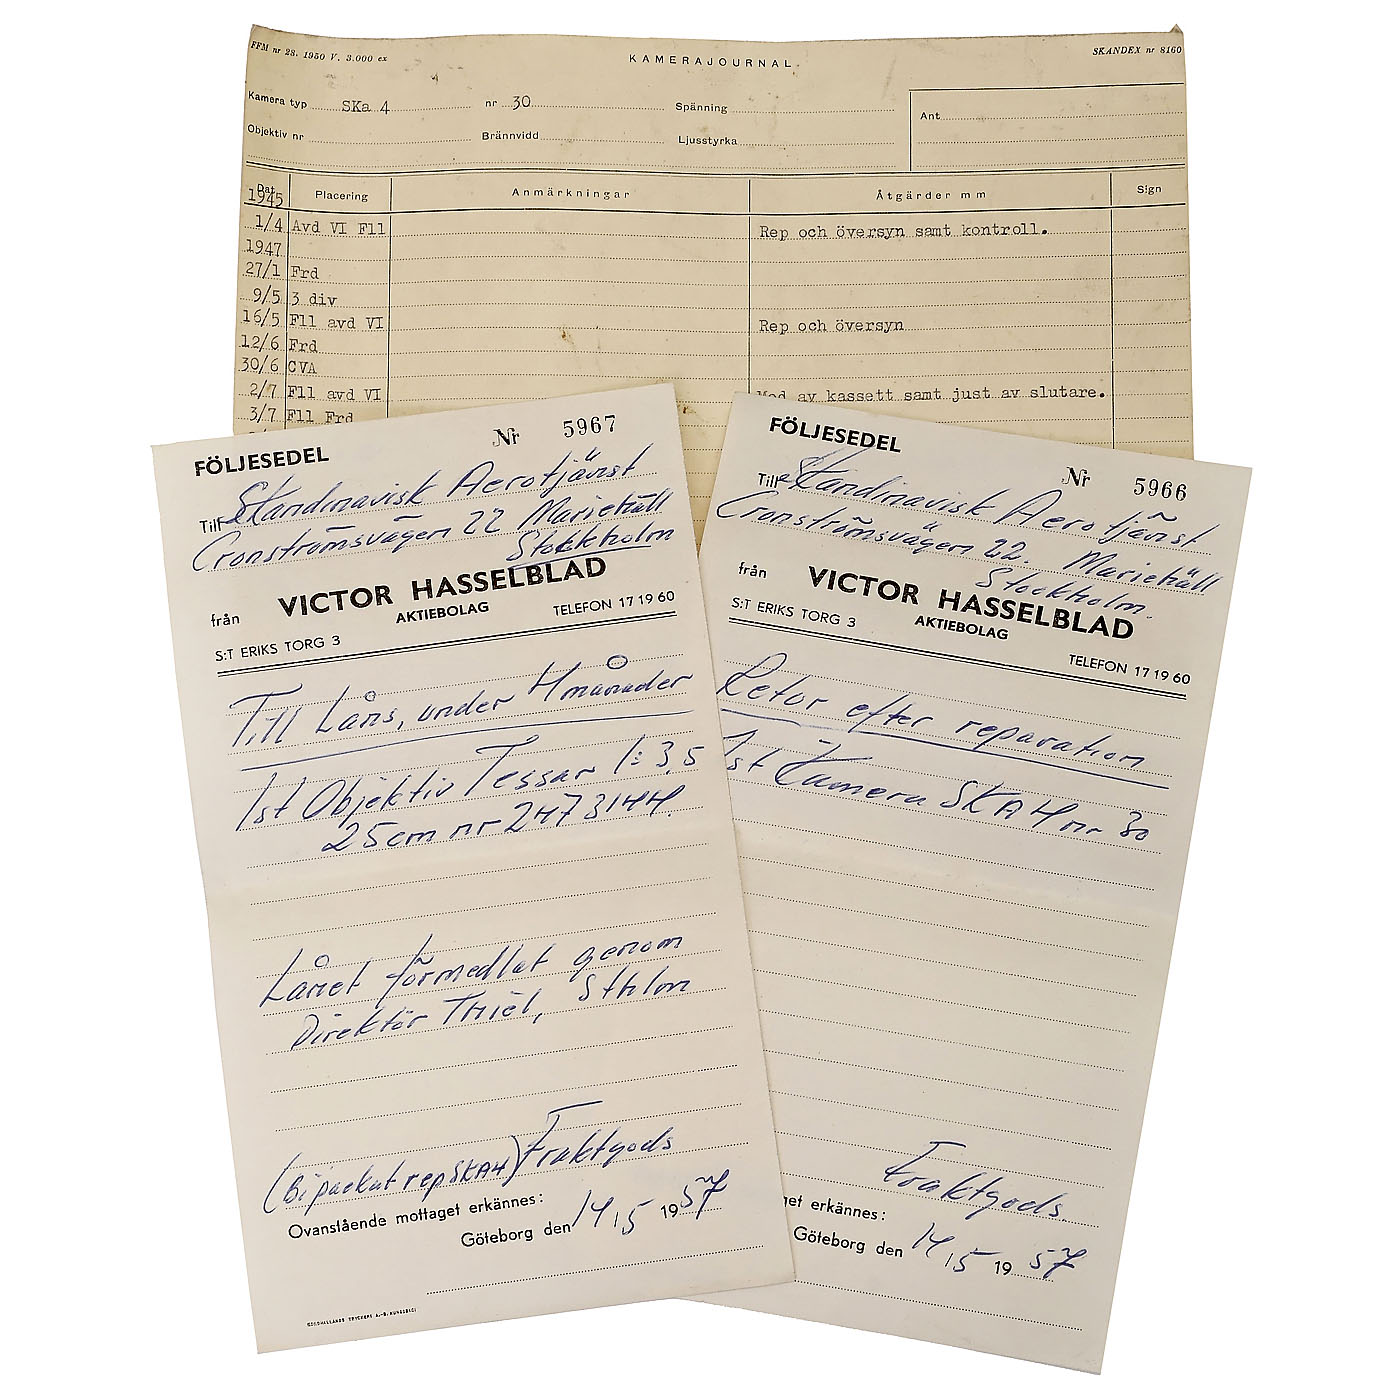 FFM nr 28. 1950 V. 3.000 ex
KAMERAJOURNAL
SKANDEX nr 8160
Kamera typ SKa 4 nr 30 Spänning
Ant
Objektiv nr Brännvidd Ljusstyrka
Dat Placering Anmärkningar Åtgärder mm Sign
1945
1/4 Avd VI F11 Rep och översyn samt kontroll.
1947
27/1 Frd
9/5 3 div
16/5 F11 avd VI Rep och översyn
12/6 Frd
30/6 CVA
2/7 F11 avd VI Mod av kassett samt just av slutare.
3/7 F11 Frd
FÖLJESEDEL Nr 5967
Till Skandinavisk Aerotjänst
Cronströmsvägen 22 Mariehäll
Stockholm
från VICTOR HASSELBLAD
AKTIEBOLAG
S:T ERIKS TORG 3 TELEFON 17 19 60
Till Låns, under 4 månader
1st Objektiv Tessar 1:3,5
25cm nr 2473144.
Lånet förmedlat genom
Direktör Thiel, Sthlm
(Bipackat rep SKA4) Fraktgods
Ovanstående mottaget erkännes:
Göteborg den 14/5 1957
FÖLJESEDEL Nr 5966
Till Skandinavisk Aerotjänst
Cronströmsvägen 22. Mariehäll
Stockholm
från VICTOR HASSELBLAD
AKTIEBOLAG
S:T ERIKS TORG 3 TELEFON 17 19 60
Retur efter reparation
1st Kamera SKA 4 nr 30
Fraktgods
get erkännes:
Göteborg den 14/5 1957